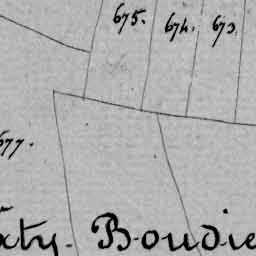 675. 674. 673
677.
xty. Boudie